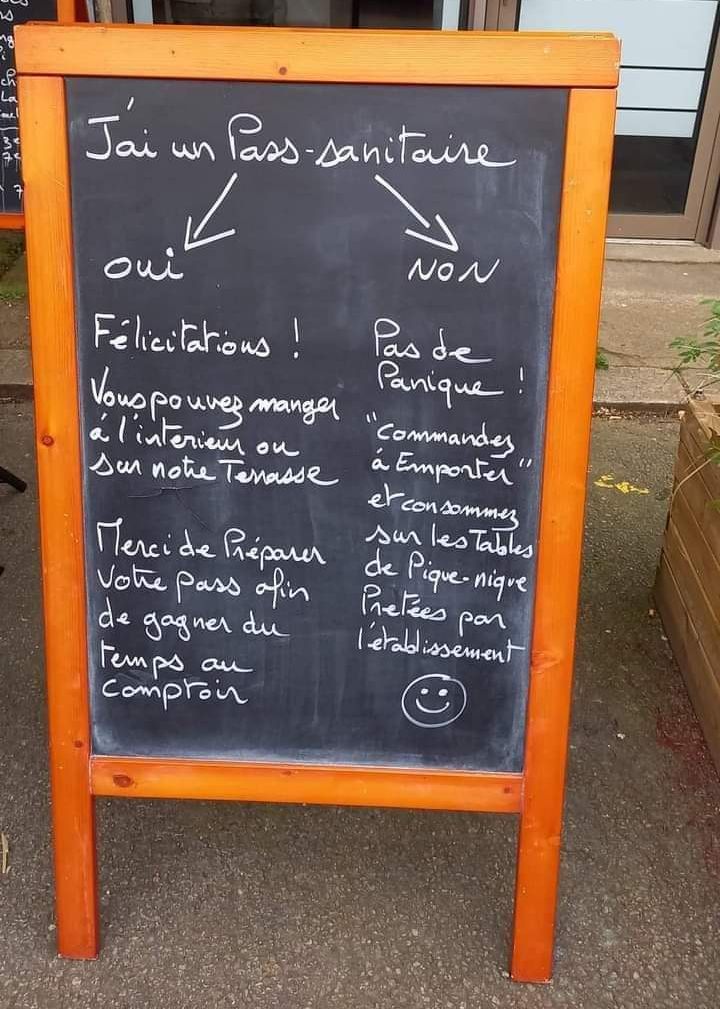 J'ai un Pass-sanitaire
oui
Félicitations !
Vous pouvez manger
à l'interieur ou
sur notre Terrasse
Merci de Préparer
Votre pass afin
de gagner du
temps au
comptoir
NON
Pas de
Panique !
"commandez
à Emporter"
et consommez
sur les Tables
de Pique-nique
Pretées par
l'établissement